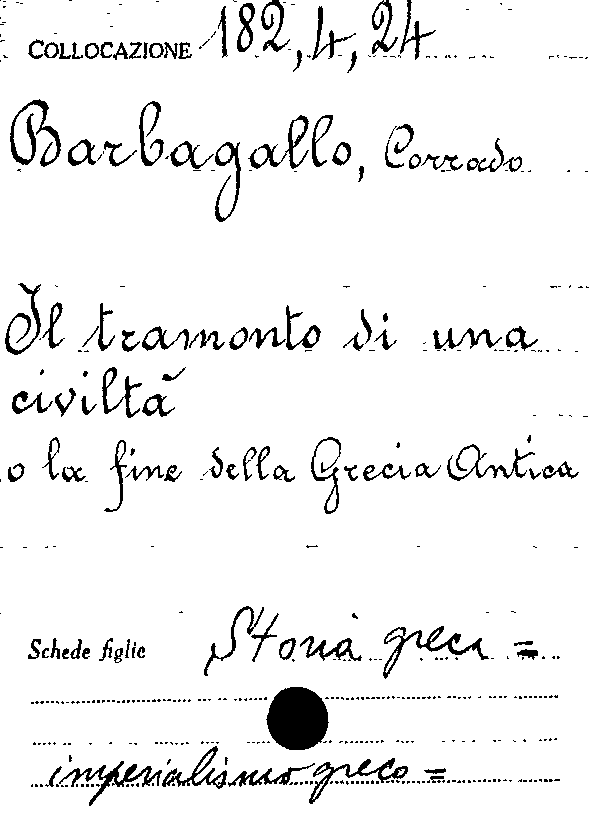 COLLOCAZIONE 182,4,24
Barbagallo, Corrado
Il tramonto di una
civiltà
o la fine della Grecia Antica
Schede figlie Storia greca =
imperialismo greco =